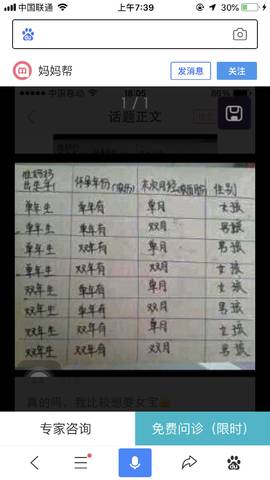 中国联通 上午7:39 30%
妈妈帮 发消息 关注
中国移动 18:05 86%
1/1
话题正文
准妈妈 怀孕年份(农历) 末次月经 性别
出生年
单年生 单年有 单月 女孩
单年生 单年有 双月 男孩
单年生 双年有 双月 男孩
单年生 双年有 单月 女孩
双年生 单年有 单月 女孩
双年生 单年有 双月 男孩
双年生 双年有 单月 女孩
双年生 双年有 双月 男孩
真的吗，我比较想要女宝
专家咨询 免费问诊（限时）